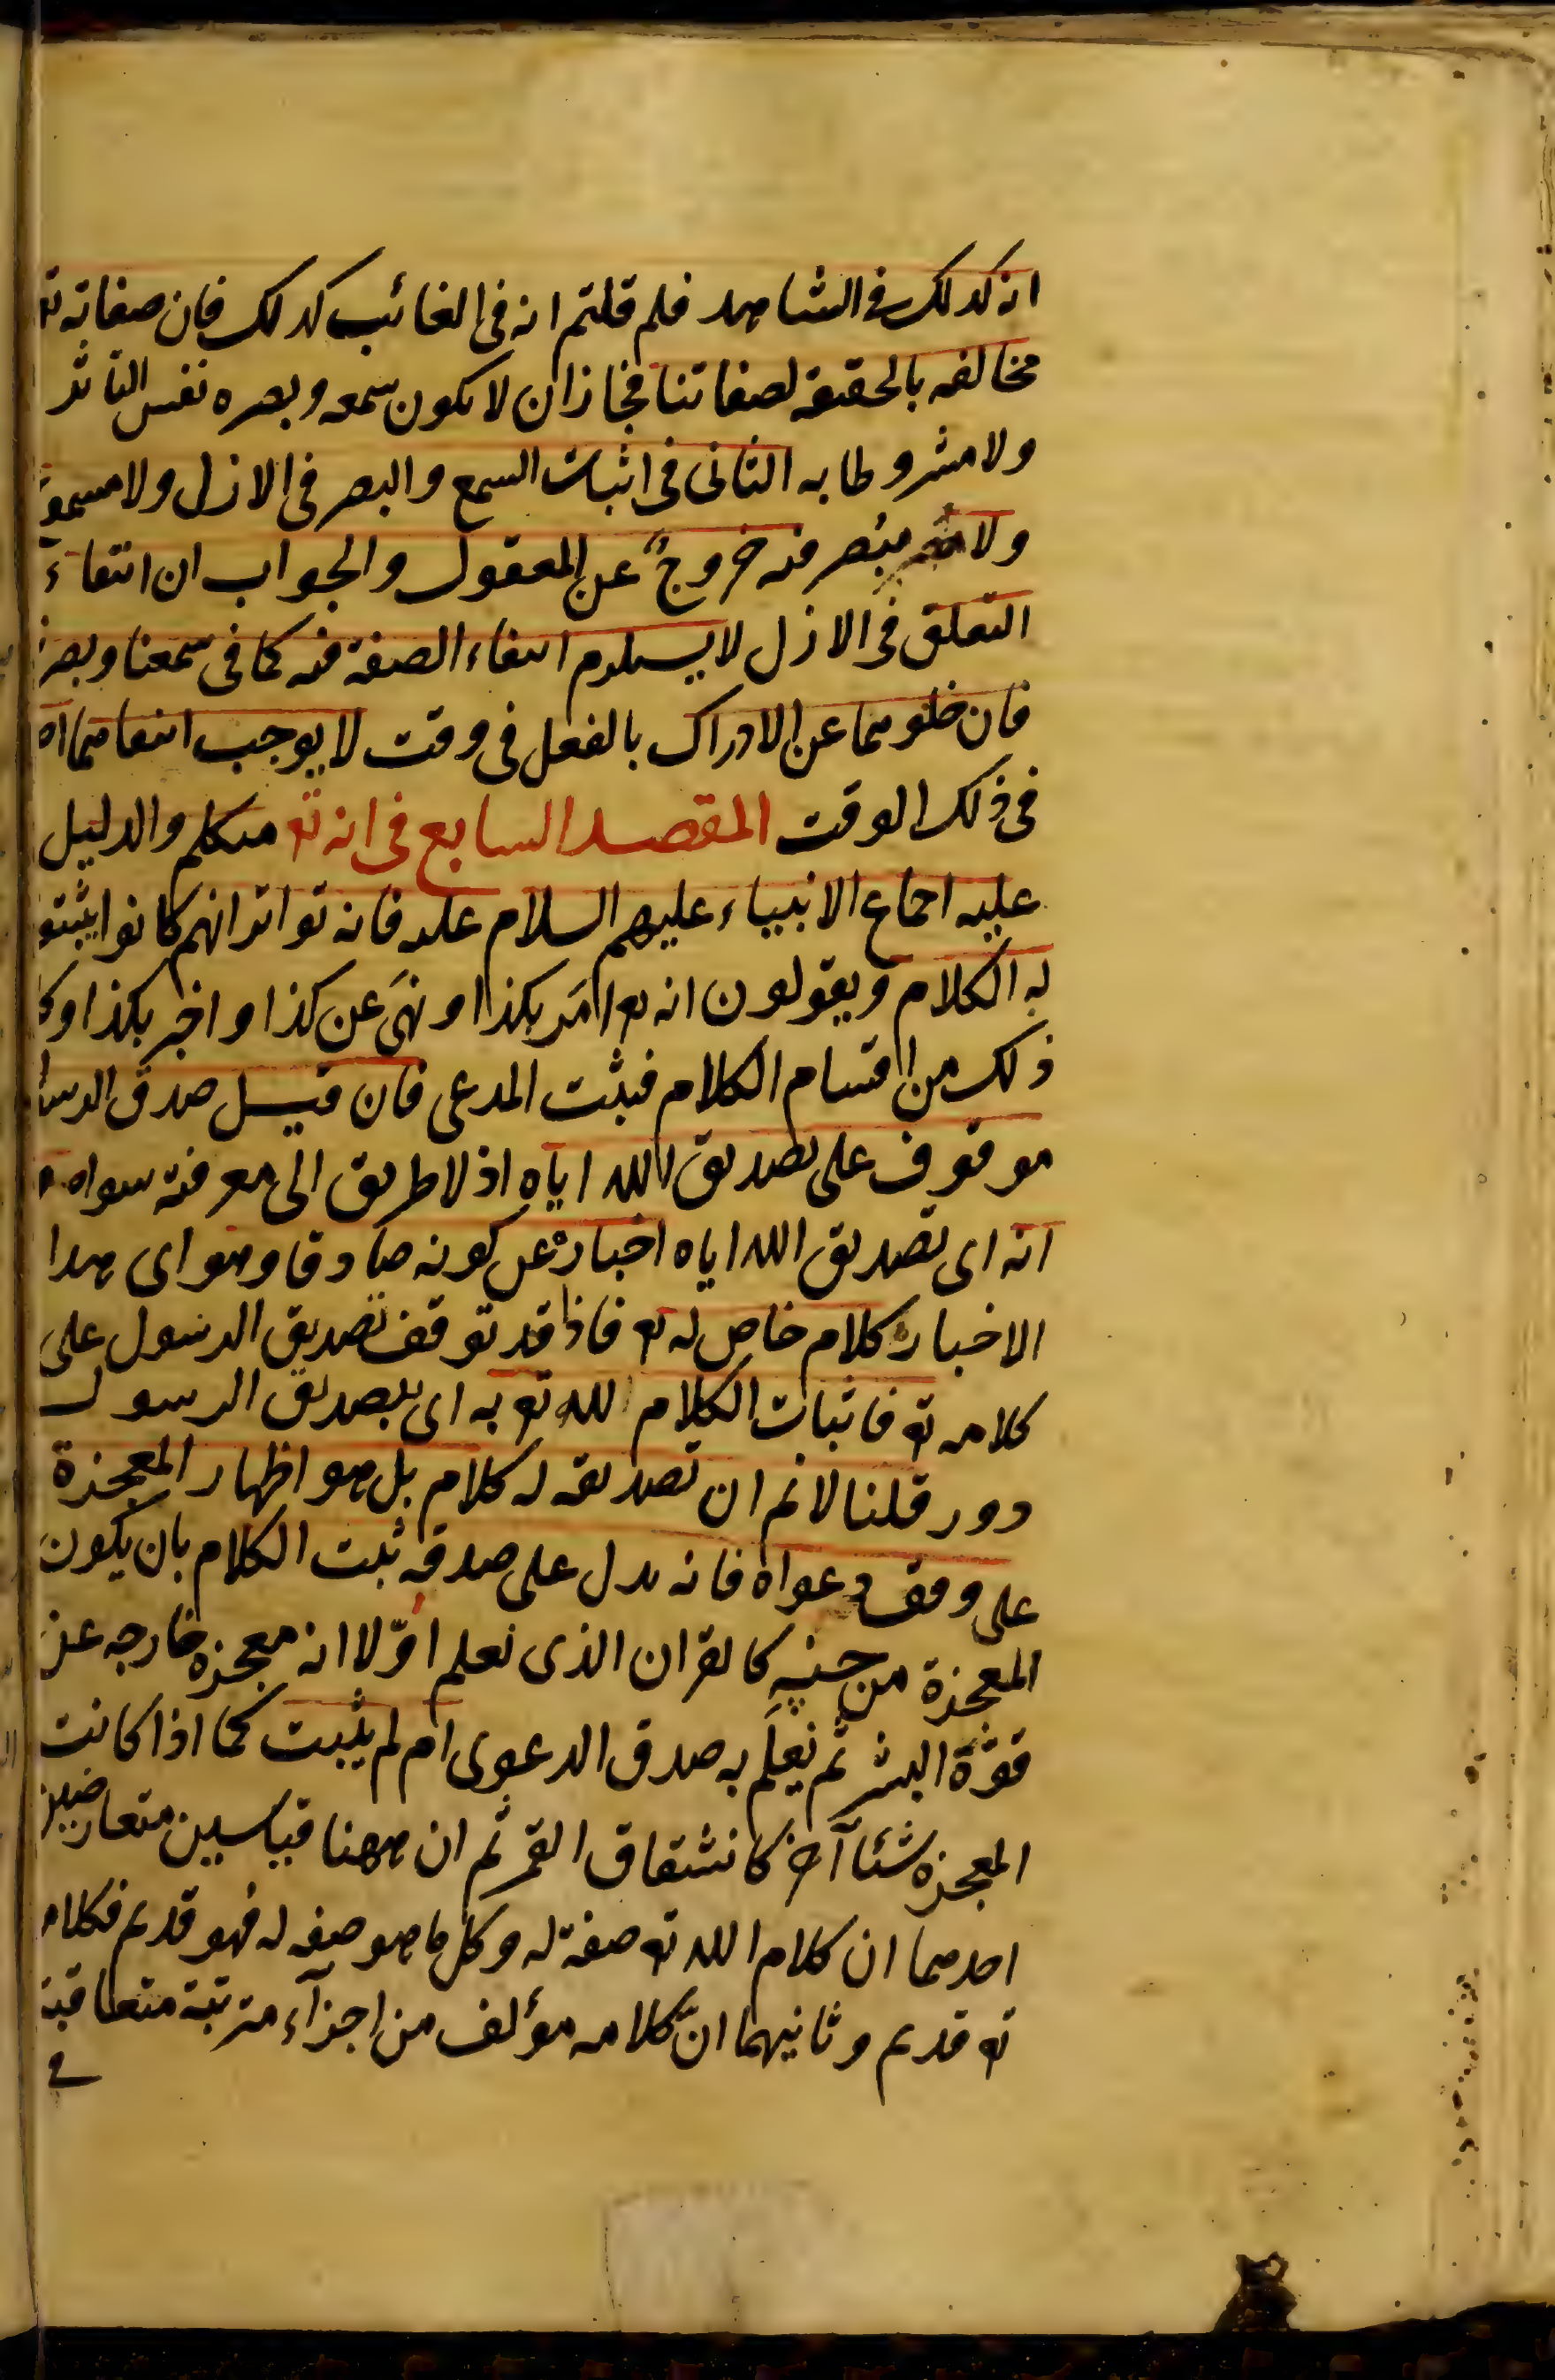 انه كذلك فى الشاهد فلم قلتم انه فى الغائب كذلك فان صفاته تع
مخالفه بالحقيقة لصفاتنا فجاز ان لا يكون سمعه وبصره نفس التاثر
ولا مشروطا به الثانى فى اثبات السمع والبصر فى الازل ولا مسموع
ولا مبصر فيه خروج عن المعقول والجواب ان انتفاء
التعلق فى الازل لا يستلزم انتفاء الصفة فيه كما فى سمعنا وبصرنا
فان خلوهما عن الادراك بالفعل فى وقت لا يوجب انتفاهما اه
فى ذلك الوقت المقصد السابع فى انه تع متكلم والدليل
عليه اجماع الانبياء عليهم السلام عليه فانه تواتر انهم كانوا يثبتو
له الكلام ويقولون انه تع امَر بكذا ونهَى عن كذا واخبر بكذا وكل
ذلك من اقسام الكلام فثبت المدعى فان قيل صدق الرسل
موقوف على تصديق الله اياه اذ لا طريق الى معرفته سواه و
انه اى تصديق الله اياه اخباره عن كونه صادقا وهو اى هذا
الاخبار كلام خاص له تع فاذا قد توقف تصديق الرسول على
كلامه تع فاثبات الكلام لله تع به اى بتصديق الرسول
دور قلنا لانم ان تصديقه له كلام بل هو اظهار المعجزة
على وفق دعواه فانه يدل على صدقه ثبت الكلام بان يكون
المعجزة من جنسِه كالقران الذى نعلم اوّلا انه معجزه خارجه عن
قوّة البشر ثم نعلَم به صدق الدعوى ام لم يثبت كما اذا كانت
المعجزه شئا آخر كانشقاق القمر ثم ان ههنا قياسين متعارضين
احدهما ان كلام الله تع صفة له وكل ما هو صفه له فهو قديم فكلامه
تع قديم وثانيهما انّ كلامه مؤلف من اجزآء مترتبة متعاقبة
فى